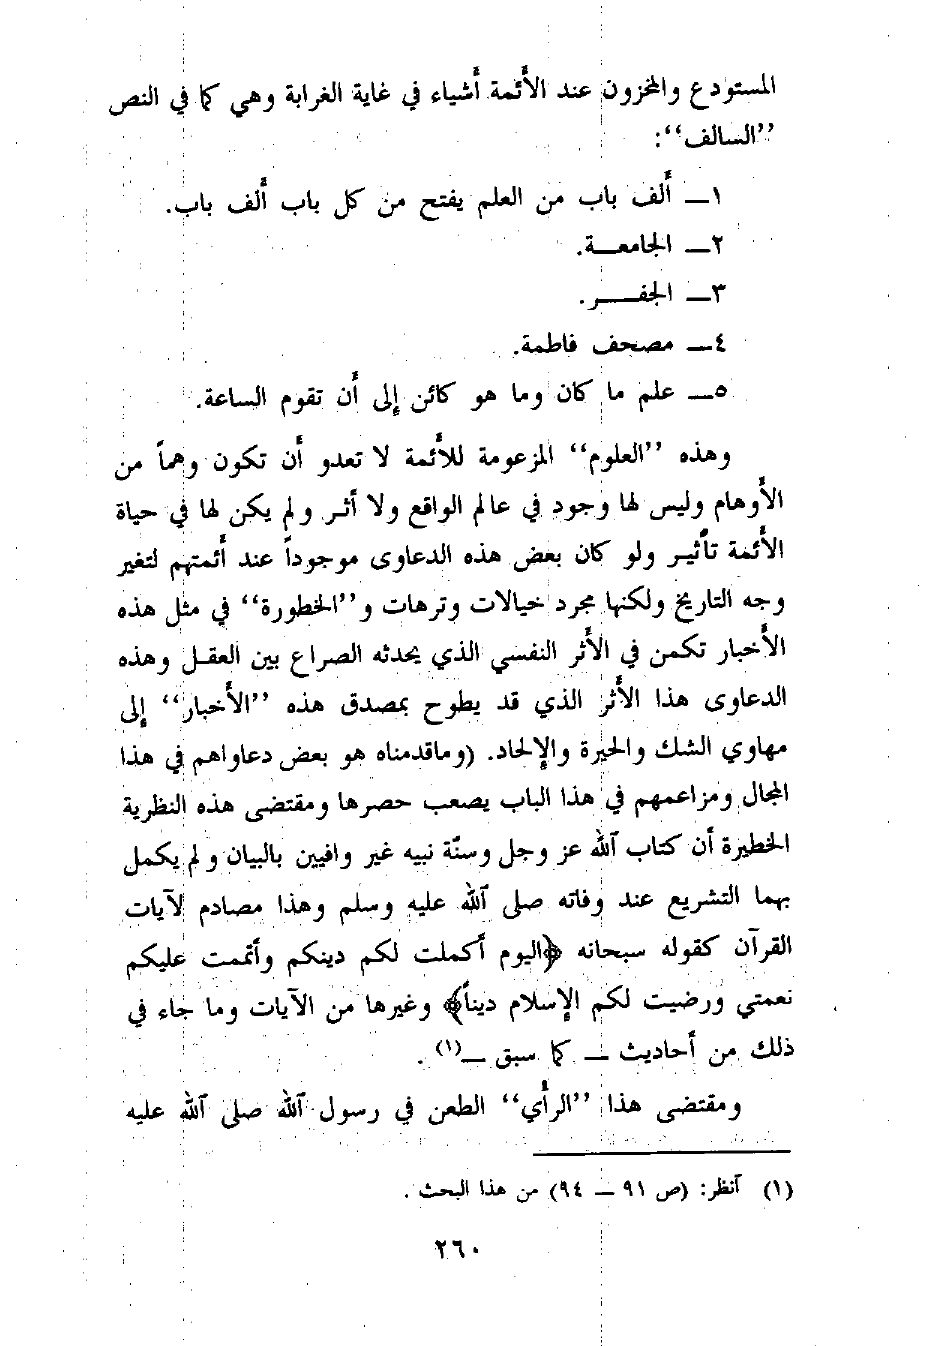 المستودع والمخزون عند الأئمة أشياء في غاية الغرابة وهي كما في النص
’’السالف‘‘:
١ــ ألف باب من العلم يفتح من كل باب ألف باب.
٢ــ الجامعــة.
٣ــ الجفــــر.
٤ــ مصحف فاطمة.
٥ــ علم ما كان وما هو كائن إلى أن تقوم الساعة.
وهذه ’’العلوم‘‘ المزعومة للأئمة لا تعدو أن تكون وهماً من
الأوهام وليس لها وجود في عالم الواقع ولا أثـر ولم يكن لها في حياة
الأئمة تأثيـر ولو كان بعض هذه الدعاوى موجوداً عند أئمتهم لتغير
وجه التاريخ ولكنها مجرد خيالات وترهات و’’الخطورة‘‘ في مثل هذه
الأخبار تكمن في الأثر النفسي الذي يحدثه الصراع بين العقـل وهذه
الدعاوى هذا الأثر الذي قد يطوح بمصدق هذه ’’الأخبار‘‘ إلى
مهاوي الشك والحيرة والإلحاد. (وماقدمناه هو بعض دعاواهم في هذا
المجال ومزاعمهم في هذا الباب يصعب حصرها ومقتضى هذه النظرية
الخطيرة أن كتاب الله عز وجل وسنّة نبيه غير وافيين بالبيان ولم يكمل
بهما التشريع عند وفاته صلى الله عليه وسلم وهذا مصادم لآيات
القرآن كقوله سبحانه ﴿اليوم أكملت لكم دينكم وأتممت عليكم
نعمتي ورضيت لكم الإسلام ديناً﴾ وغيرها من الآيات وما جاء في
ذلك من أحاديث ــ كما سبق ــ(١) .
ومقتضى هذا ’’الرأي‘‘ الطعن في رسول الله صلى الله عليه
(١) أنظر: (ص ٩١ ــ ٩٤) من هذا البحث .
٢٦٠